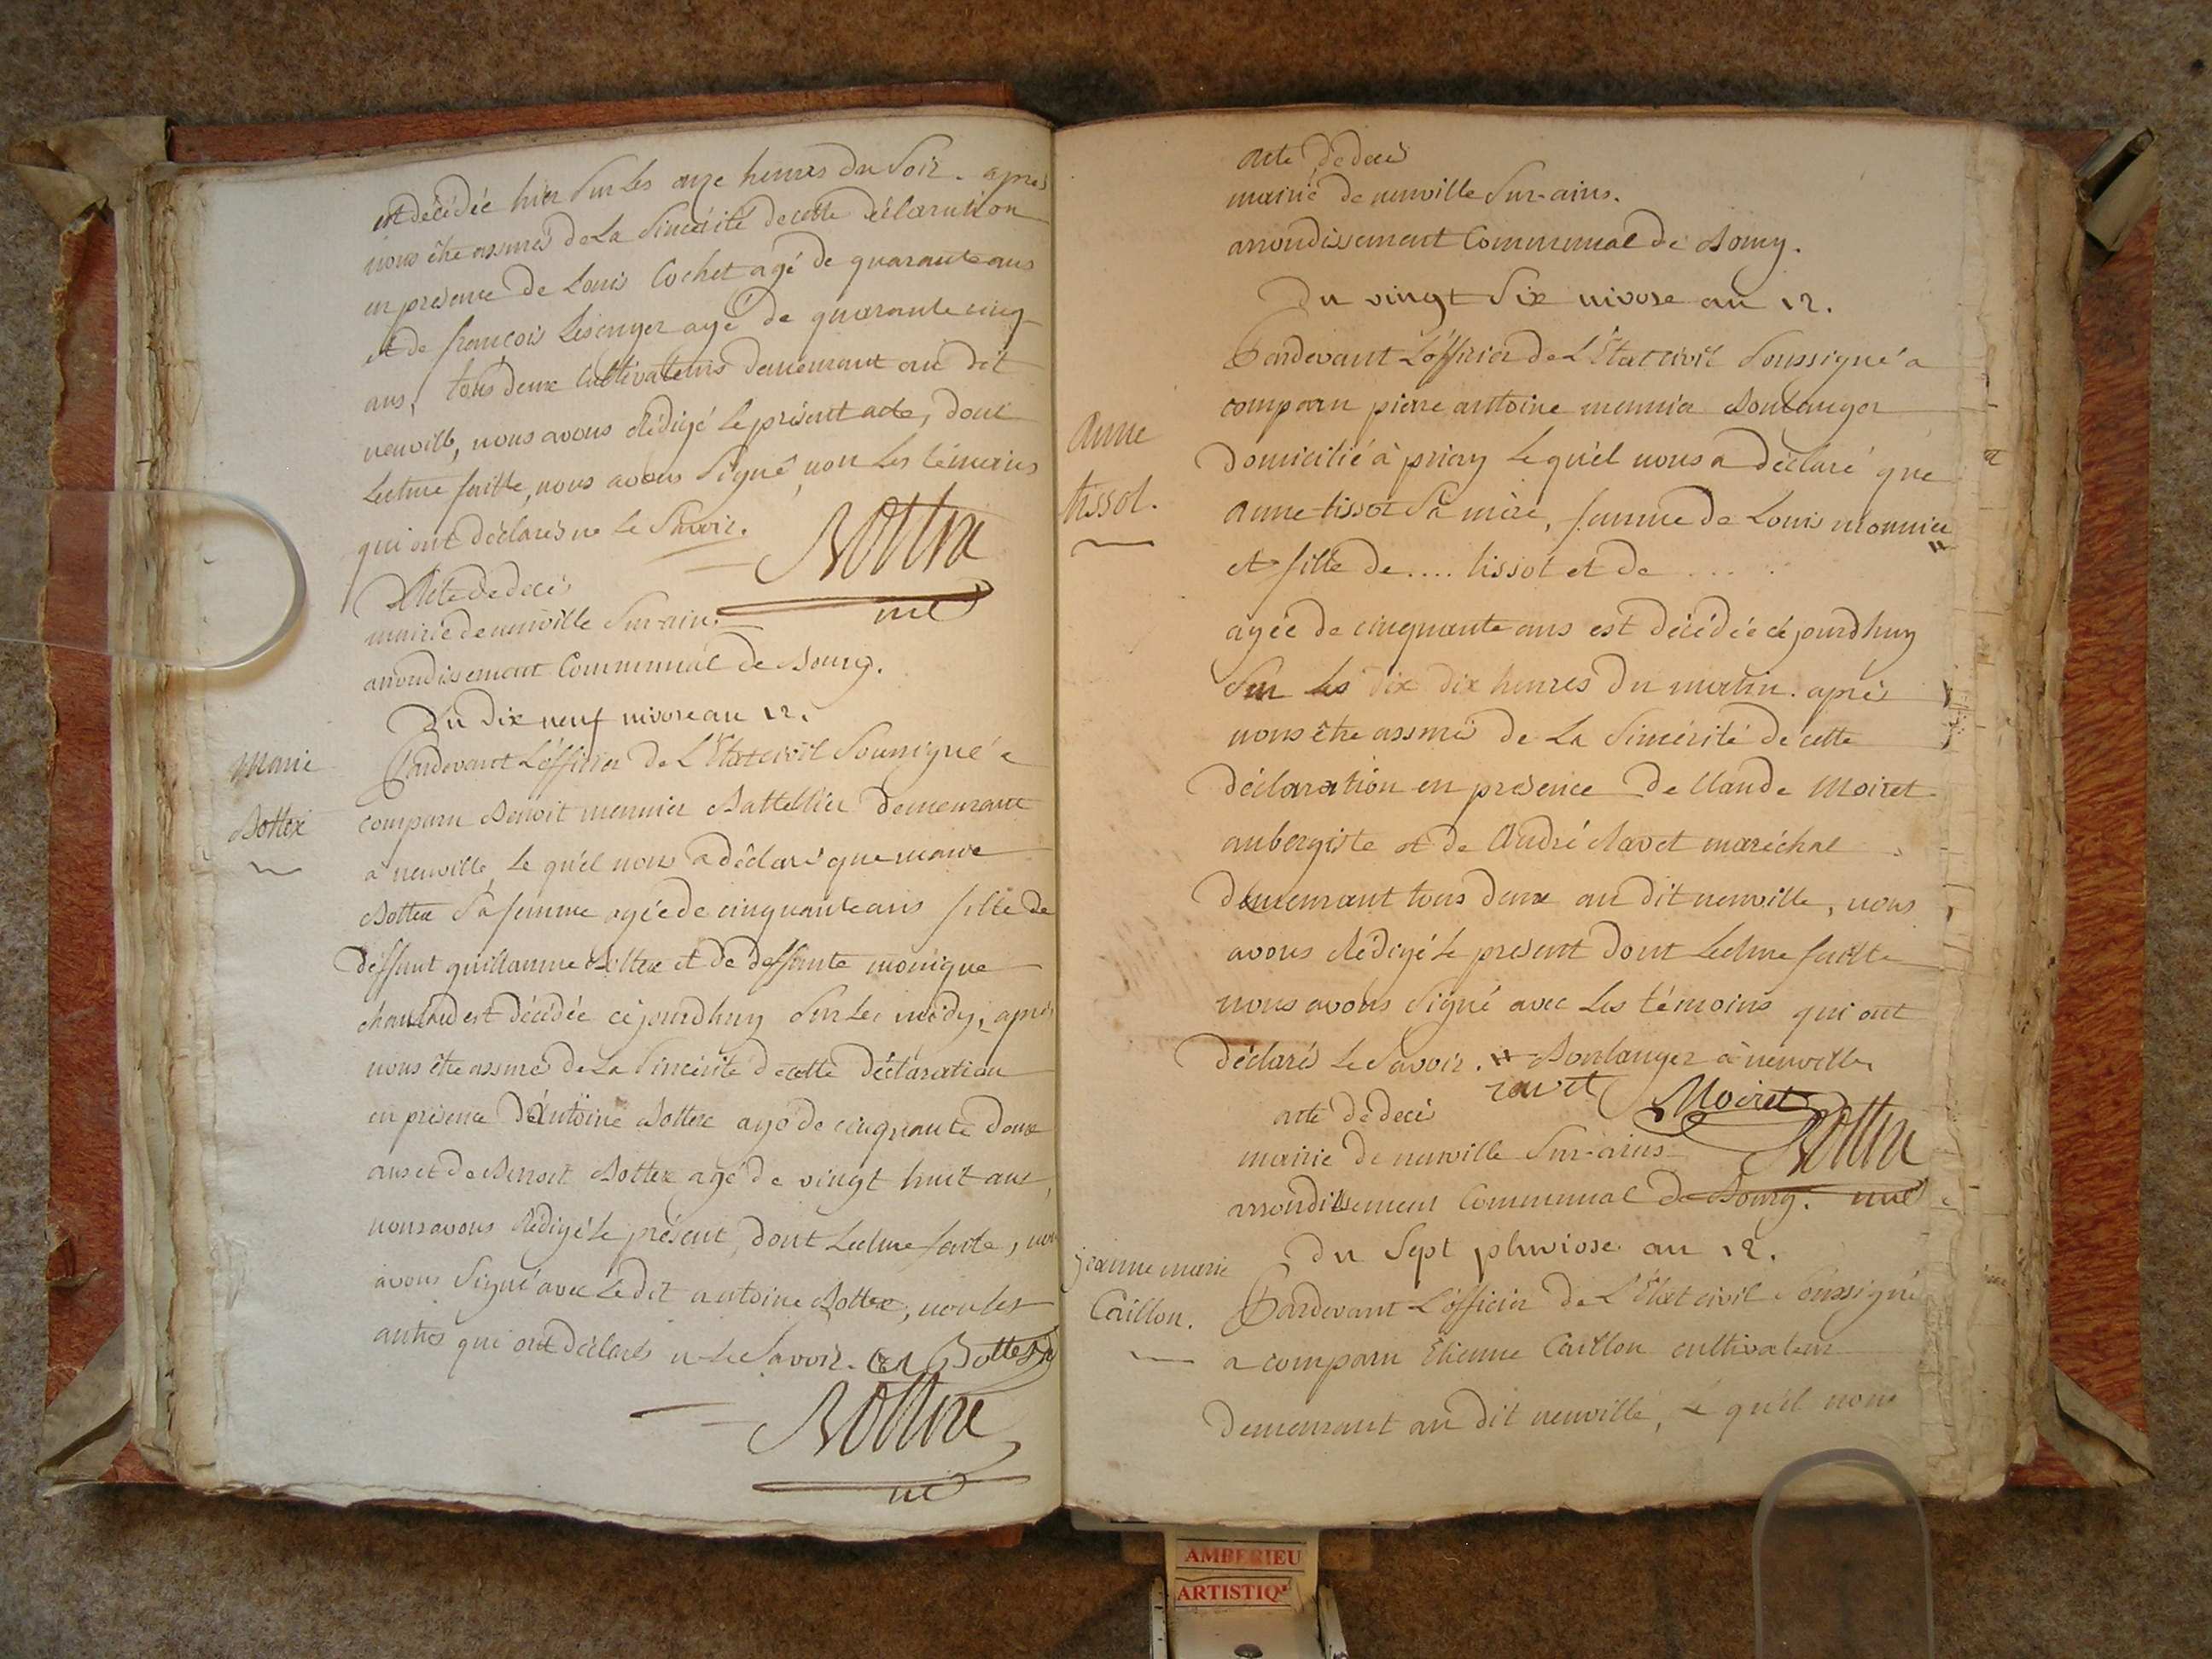 est décédée hier sur les onze heures du soir. après
nous être assuré de la sincérité de cette déclaration
en presence de Louis Cochet agé de quarante ans
et de françois agé de quarante cinq
ans, tous deux cultivateurs demeurant au dit
neuville, nous avons rédigé le présent acte, dont
lecture faitte, nous avons signé, non les témoins
qui ont déclarés ne le savoir.
Acte de decès
mairie de neuville sur-ain.
arrondissement Communal de Bourg.
Du dix neuf nivose an 12.
Marie
Bottex
Pardevant L'officier de L'Etat civil soussigné a
comparu Benoit meunier Battellier demeurant
à neuville, le quel nous a déclaré que marie
Bottex sa femme agée de cinquante ans fille de
deffunt guillaume Bottex et de deffunte monique
est décédée cejourdhuy sur les midy, après
nous être assuré de la sincérité de cette déclaration
en présence d'antoine Bottex agé de cinquante deux
ans et de Benoit Bottex agé de vingt huit ans,
nous avons rédigé le présent, dont lecture faite, nous
avons signé avec le dit antoine Bottex, non les
autres qui ont déclarés ne le savoir. Bottex
acte de decès
mairie de neuville sur-ains.
arrondissement Communal de Bourg.
Du vingt six nivose an 12.
Anne
tissot.
Pardevant L'officier de L'Etat civil soussigné a
comparu pierre antoine meunier Boulanger
domicilié à priay le quel nous a déclaré que
anne tissot sa mère, femme de Louis monnier "
et fille de .... tissot et de .....
agée de cinquante ans est décédée cejourdhuy
sur les dix dix heures du matin. après
nous être assuré de la sincérité de cette
déclaration en presence de Claude Moiret
aubergiste et de André clavet maréchal
demeurant tous deux au dit neuville, nous
avons rédigé le present dont lecture faitte
nous avons signé avec les témoins qui ont
déclarés le savoir. " Boulanger à neuville
Moiret
acte de decès
mairie de neuville sur-ains
arrondissement Communal de Bourg.
Du sept pluviose an 12.
jeanne marie
Caillon.
Pardevant L'officier de L'Etat civil soussigné
a comparu Etienne Caillon cultivateur
demeurant au dit neuville, le quel nous
AMBERIEU
ARTISTIQ